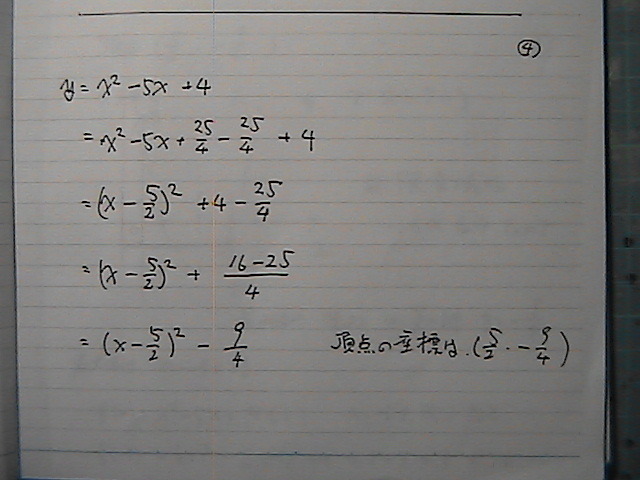 ④
y = x² - 5x + 4
= x² - 5x + 25/4 - 25/4 + 4
= (x - 5/2)² + 4 - 25/4
= (x - 5/2)² + (16-25)/4
= (x - 5/2)² - 9/4 頂点の座標は. (5/2 . -9/4)